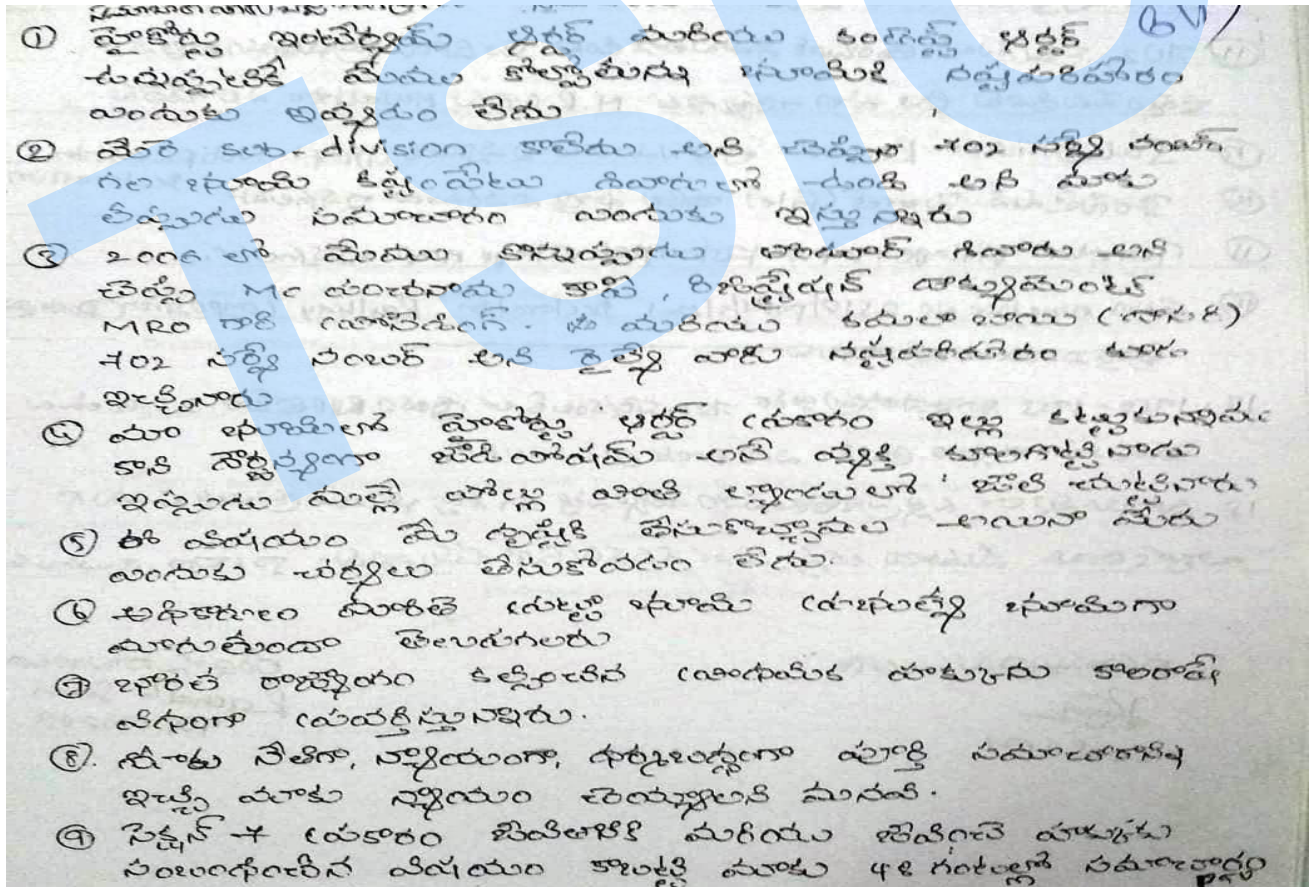 ① హైకోర్టు ఇంటీర్యమ్ ఆర్డర్ మరియు కంటెంప్ట్ ఆర్డర్
ఉన్నప్పటికీ మేము కోల్పోతున్న భూమికి నష్టపరిహారం
ఎందుకు ఇవ్వడం లేదు
② మీరే sub-division కాలేదు అని చెప్పినా 702 సర్వే నంబర్
గల భూమి కిష్టంపేట శివారులో నుండి అని మాకు
తప్పుడు సమాచారం ఎందుకు ఇస్తున్నారు
③ 2006 లో మేము కొన్నప్పుడు శివారు అని
చెప్పి Mc పంచనామా కాపీ, రిజిస్ట్రేషన్ డాక్యుమెంట్
MRO గారి ప్రొసీడింగ్. మరియు
702 సర్వే నంబర్ అని రైల్వే వారు నష్టపరిహారం కూడా
ఇచ్చినారు
④ మా భూమిలో హైకోర్టు ఆర్డర్ ప్రకారం ఇల్లు కట్టుకున్నాము
కాని దౌర్జన్యంగా అనే వ్యక్తి కూలగొట్టినాడు
ఇప్పుడు మల్లీ ల్యాండులో పాతి
⑤ ఈ విషయం మీ దృష్టికి తీసుకొచ్చాము అయినా మీరు
ఎందుకు చర్యలు తీసుకోవడం లేదు.
⑥ అధికారం మారితే పట్టా భూమి ప్రభుత్వ భూమిగా
మారుతుందా తెలుపగలరు
⑦ భారత రాజ్యాంగం కల్పించిన ప్రాథమిక హక్కును కాలరాసే
విధంగా ప్రవర్తిస్తున్నారు.
⑧. మాకు నీతిగా, న్యాయంగా, ధర్మబద్ధంగా పూర్తి సమాచారాన్ని
ఇచ్చి మాకు న్యాయం చేయ్యాలని మనవి.
⑨ సెక్షన్ 7 ప్రకారం జీవితానికి మరియు జీవించే హక్కుకు
సంబంధించిన విషయం కాబట్టి మాకు 48 గంటల్లో